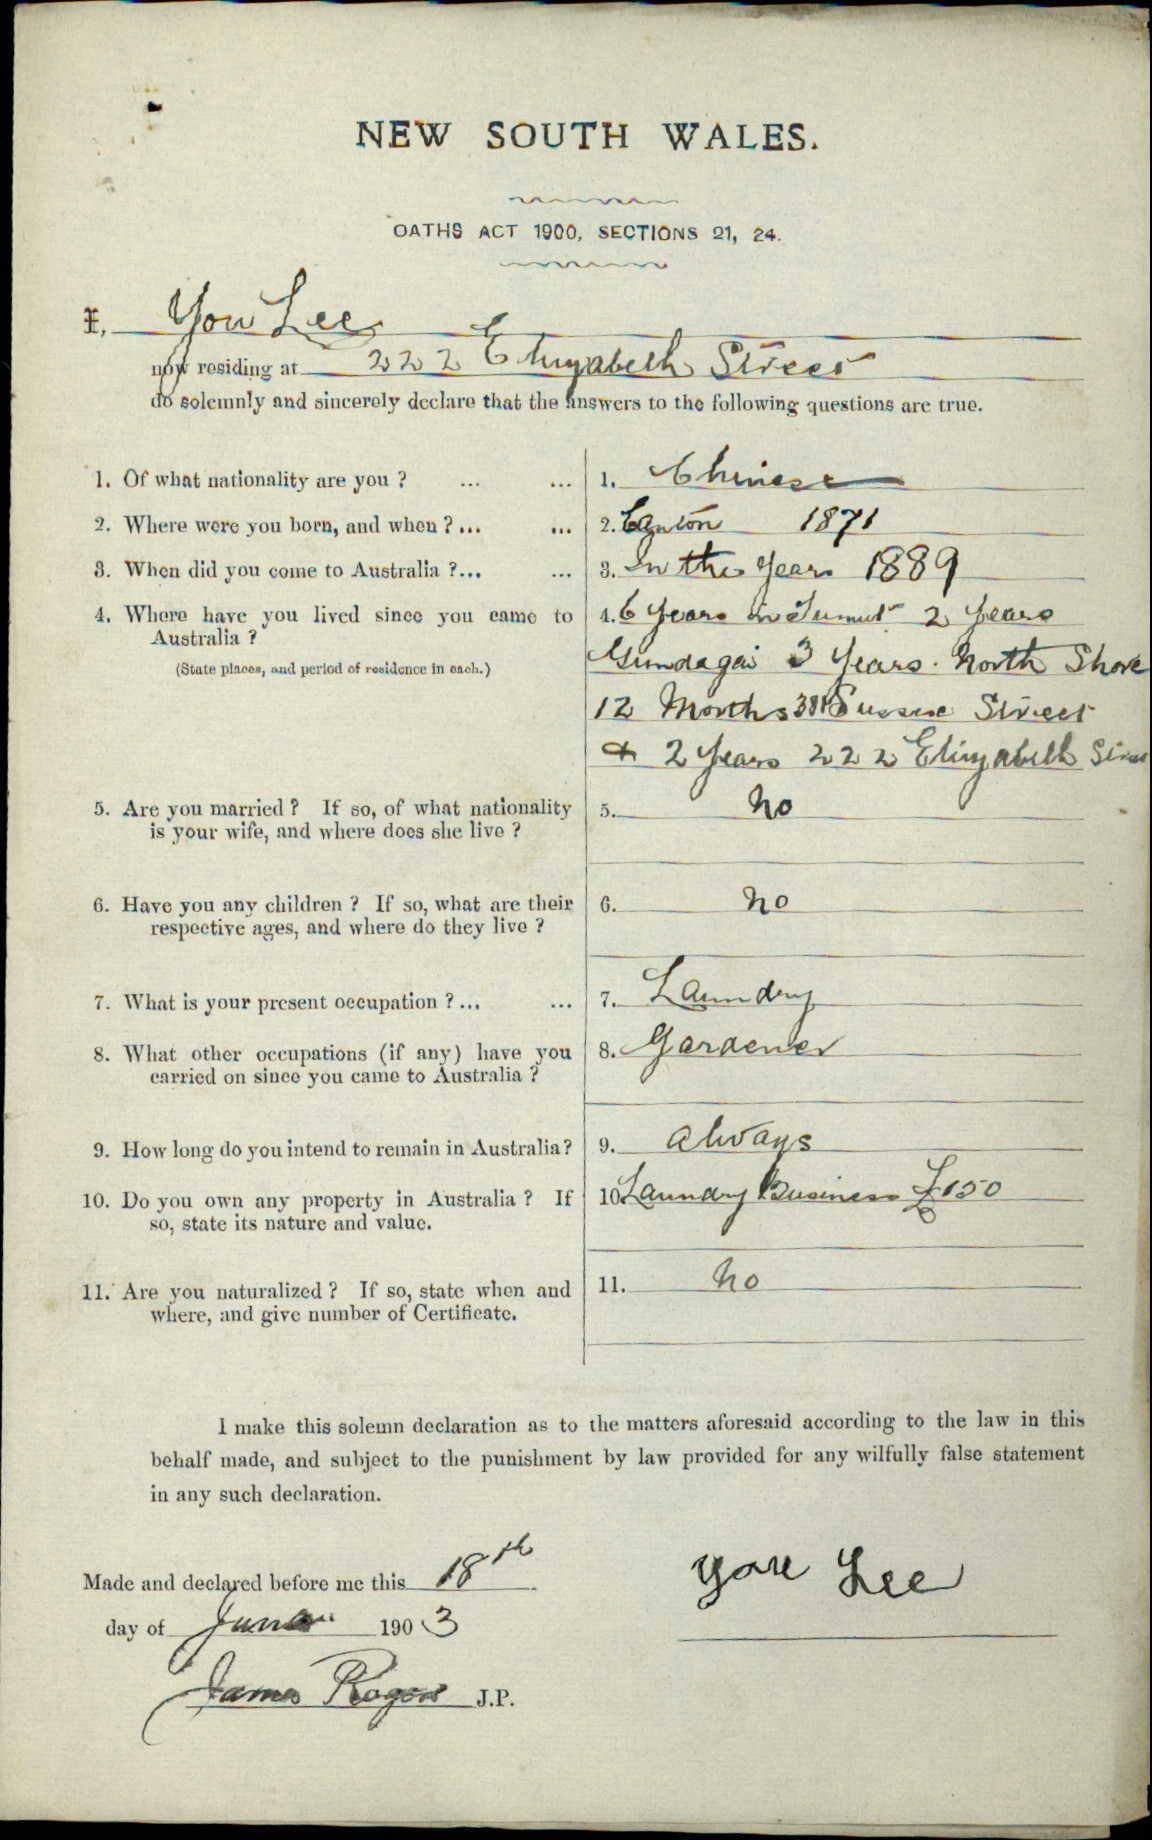 NEW SOUTH WALES.
OATHS ACT 1900, SECTIONS 21, 24.
I, You Lee
now residing at 222 Elizabeth Street
do solemnly and sincerely declare that the answers to the following questions are true.
1. Of what nationality are you ? ... ... 1. Chinese
2. Where were you born, and when ? ... ... 2. Canton 1871
3. When did you come to Australia ? ... ... 3. In the Year 1889
4. Where have you lived since you came to 4. 6 Years in Tumut 2 Years
Australia ?
(State places, and period of residence in each.) Gundagai 3 Years. North Shore
12 Months 381 Sussex Street
& 2 Years 222 Elizabeth Street
5. Are you married ? If so, of what nationality 5. No
is your wife, and where does she live ?
6. Have you any children ? If so, what are their 6. No
respective ages, and where do they live ?
7. What is your present occupation ? ... ... 7. Laundry
8. What other occupations (if any) have you 8. Gardener
carried on since you came to Australia ?
9. How long do you intend to remain in Australia? 9. always
10. Do you own any property in Australia ? If 10. Laundry Business £150
so, state its nature and value.
11. Are you naturalized ? If so, state when and 11. No
where, and give number of Certificate.
I make this solemn declaration as to the matters aforesaid according to the law in this
behalf made, and subject to the punishment by law provided for any wilfully false statement
in any such declaration.
Made and declared before me this 18th
day of June 1903
You Lee
James Rogers J.P.